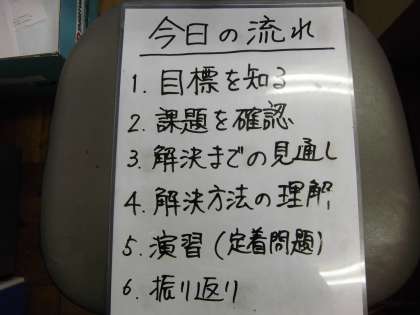 今日の流れ
1. 目標を知る
2. 課題を確認
3. 解決までの見通し
4. 解決方法の理解
5. 演習(定着問題)
6. 振り返り